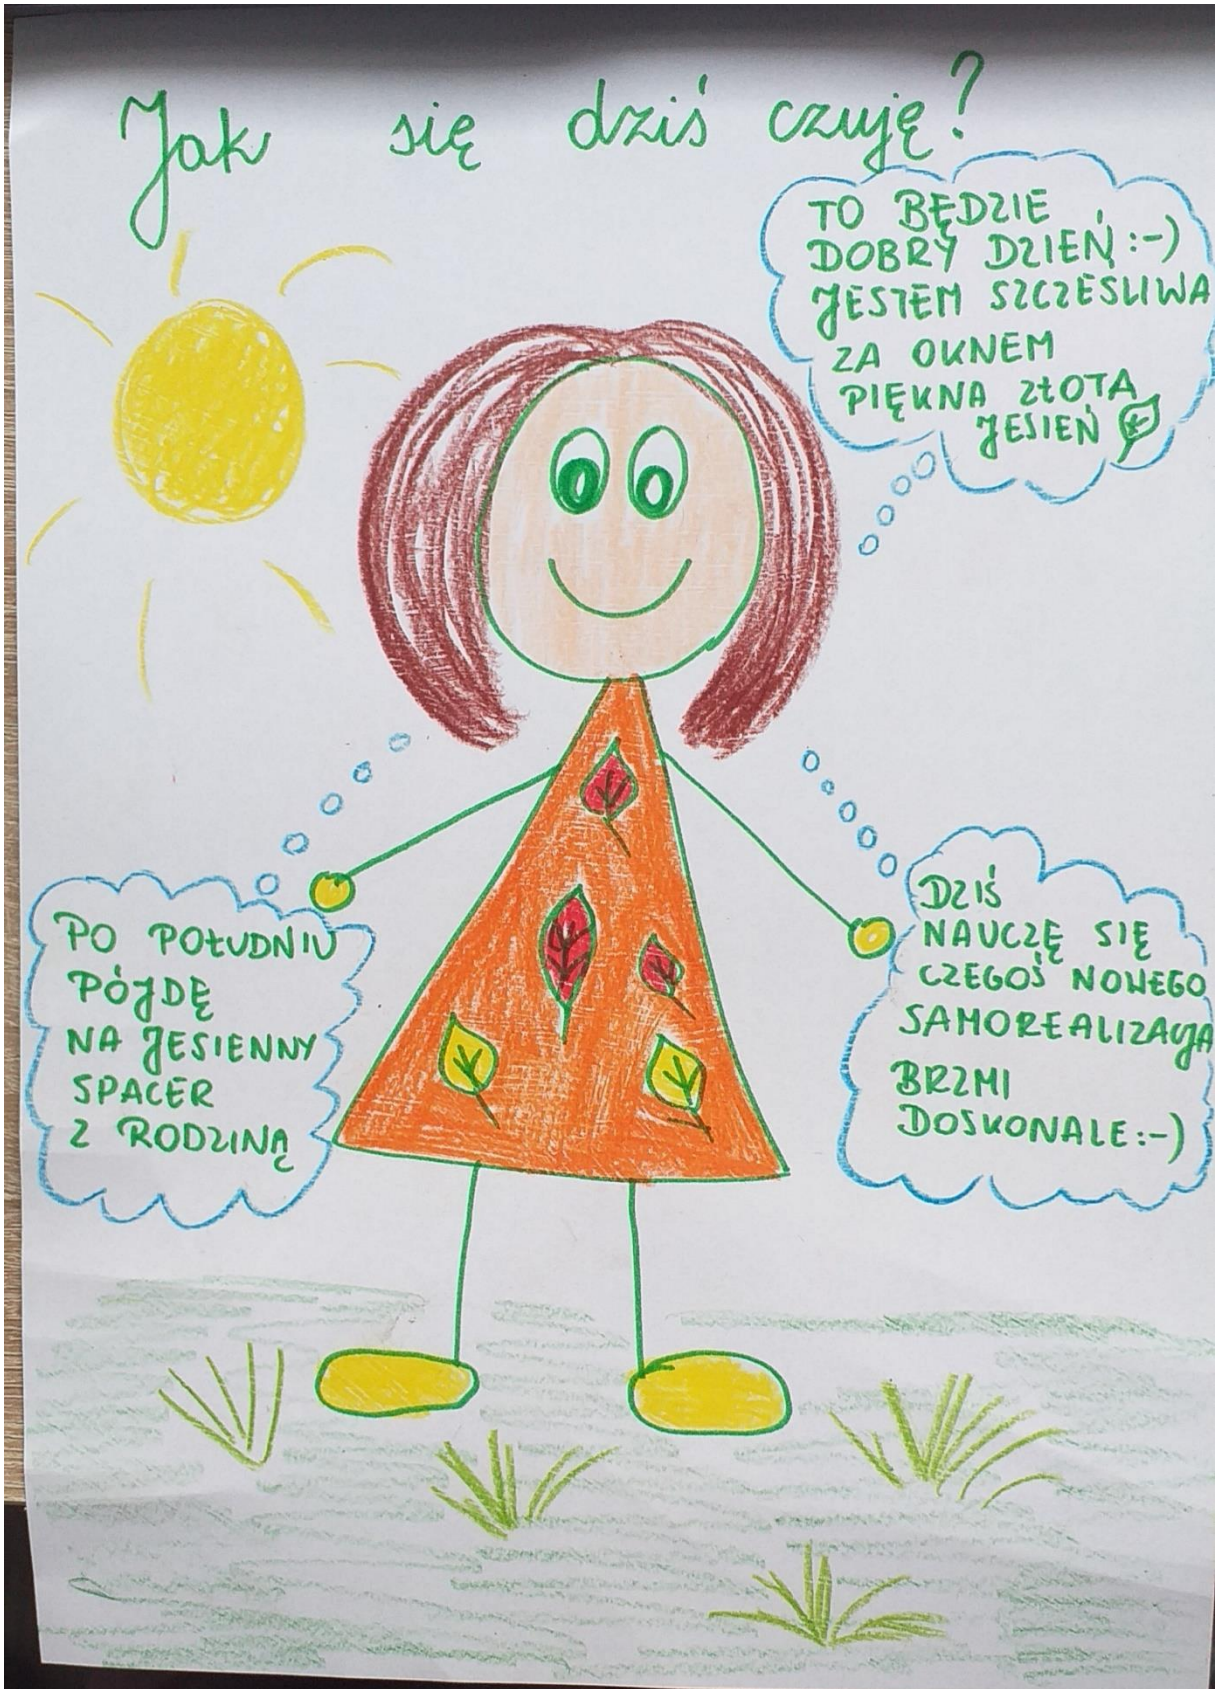 Jak się dziś czuję?
TO BĘDZIE
DOBRY DZIEŃ :-)
JESTEM SZCZEŚLIWA
ZA OKNEM
PIĘKNA ZŁOTA
JESIEŃ
PO POŁUDNIU
PÓJDĘ
NA JESIENNY
SPACER
Z RODZINĄ
DZIŚ
NAUCZĘ SIĘ
CZEGOŚ NOWEGO
SAMOREALIZACJA
BRZMI
DOSKONALE :-)